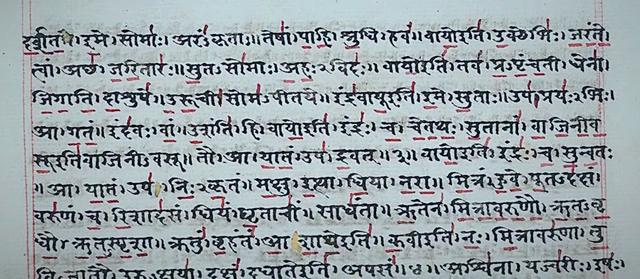 दर्शत। इमे। सोमाः। अरंऽकृताः॥ तेषां। पाहि। श्रुधि। हवं॥ वायोइति। उक्थेभिः। जरंते
त्वां। अछ। जरितारः॥ सुतऽसोमाः। अहः२विदः॥ वायोइति। तव। प्रऽपृंचती। धेना
जिगाति। दाशुषे॥ उरूची। सोमऽपीतये॥ इंद्रवायूइति। इमे। सुताः॥ उप। प्रयः२भिः।
आ। गतं। इंदवः। वां। उशंति। हि। वायोइति। इंद्रः। च। चेतथः। सुतानां। वाजिनीव
सूइतिवाजिनीऽवसू॥ तौ। आ। यातं। उप। द्रवत्॥३॥ वायोइति। इंद्रः। च। सुन्वतः
॥आ। यातं। उप। निः२कृतं॥ मक्षु। इत्था। धिया। नरा॥ मित्रं। हुवे। पूतऽदक्षं।
वरुणं। च। रिशादसं। धियं। घृताचीं। साधंता॥ ऋतेन। मित्रावरुणौ। ऋतऽवृ
धौ। ऋतऽस्पृशा॥ क्रतुं। बृहंतं। आशाथेइति॥ कवीइति। नः। मित्रावरुणा। तु
विऽजातौ। उरुऽक्षया। दक्षं। दधातेइति। अपसं॥४॥ अश्विना। यज्वरीः। इषः।